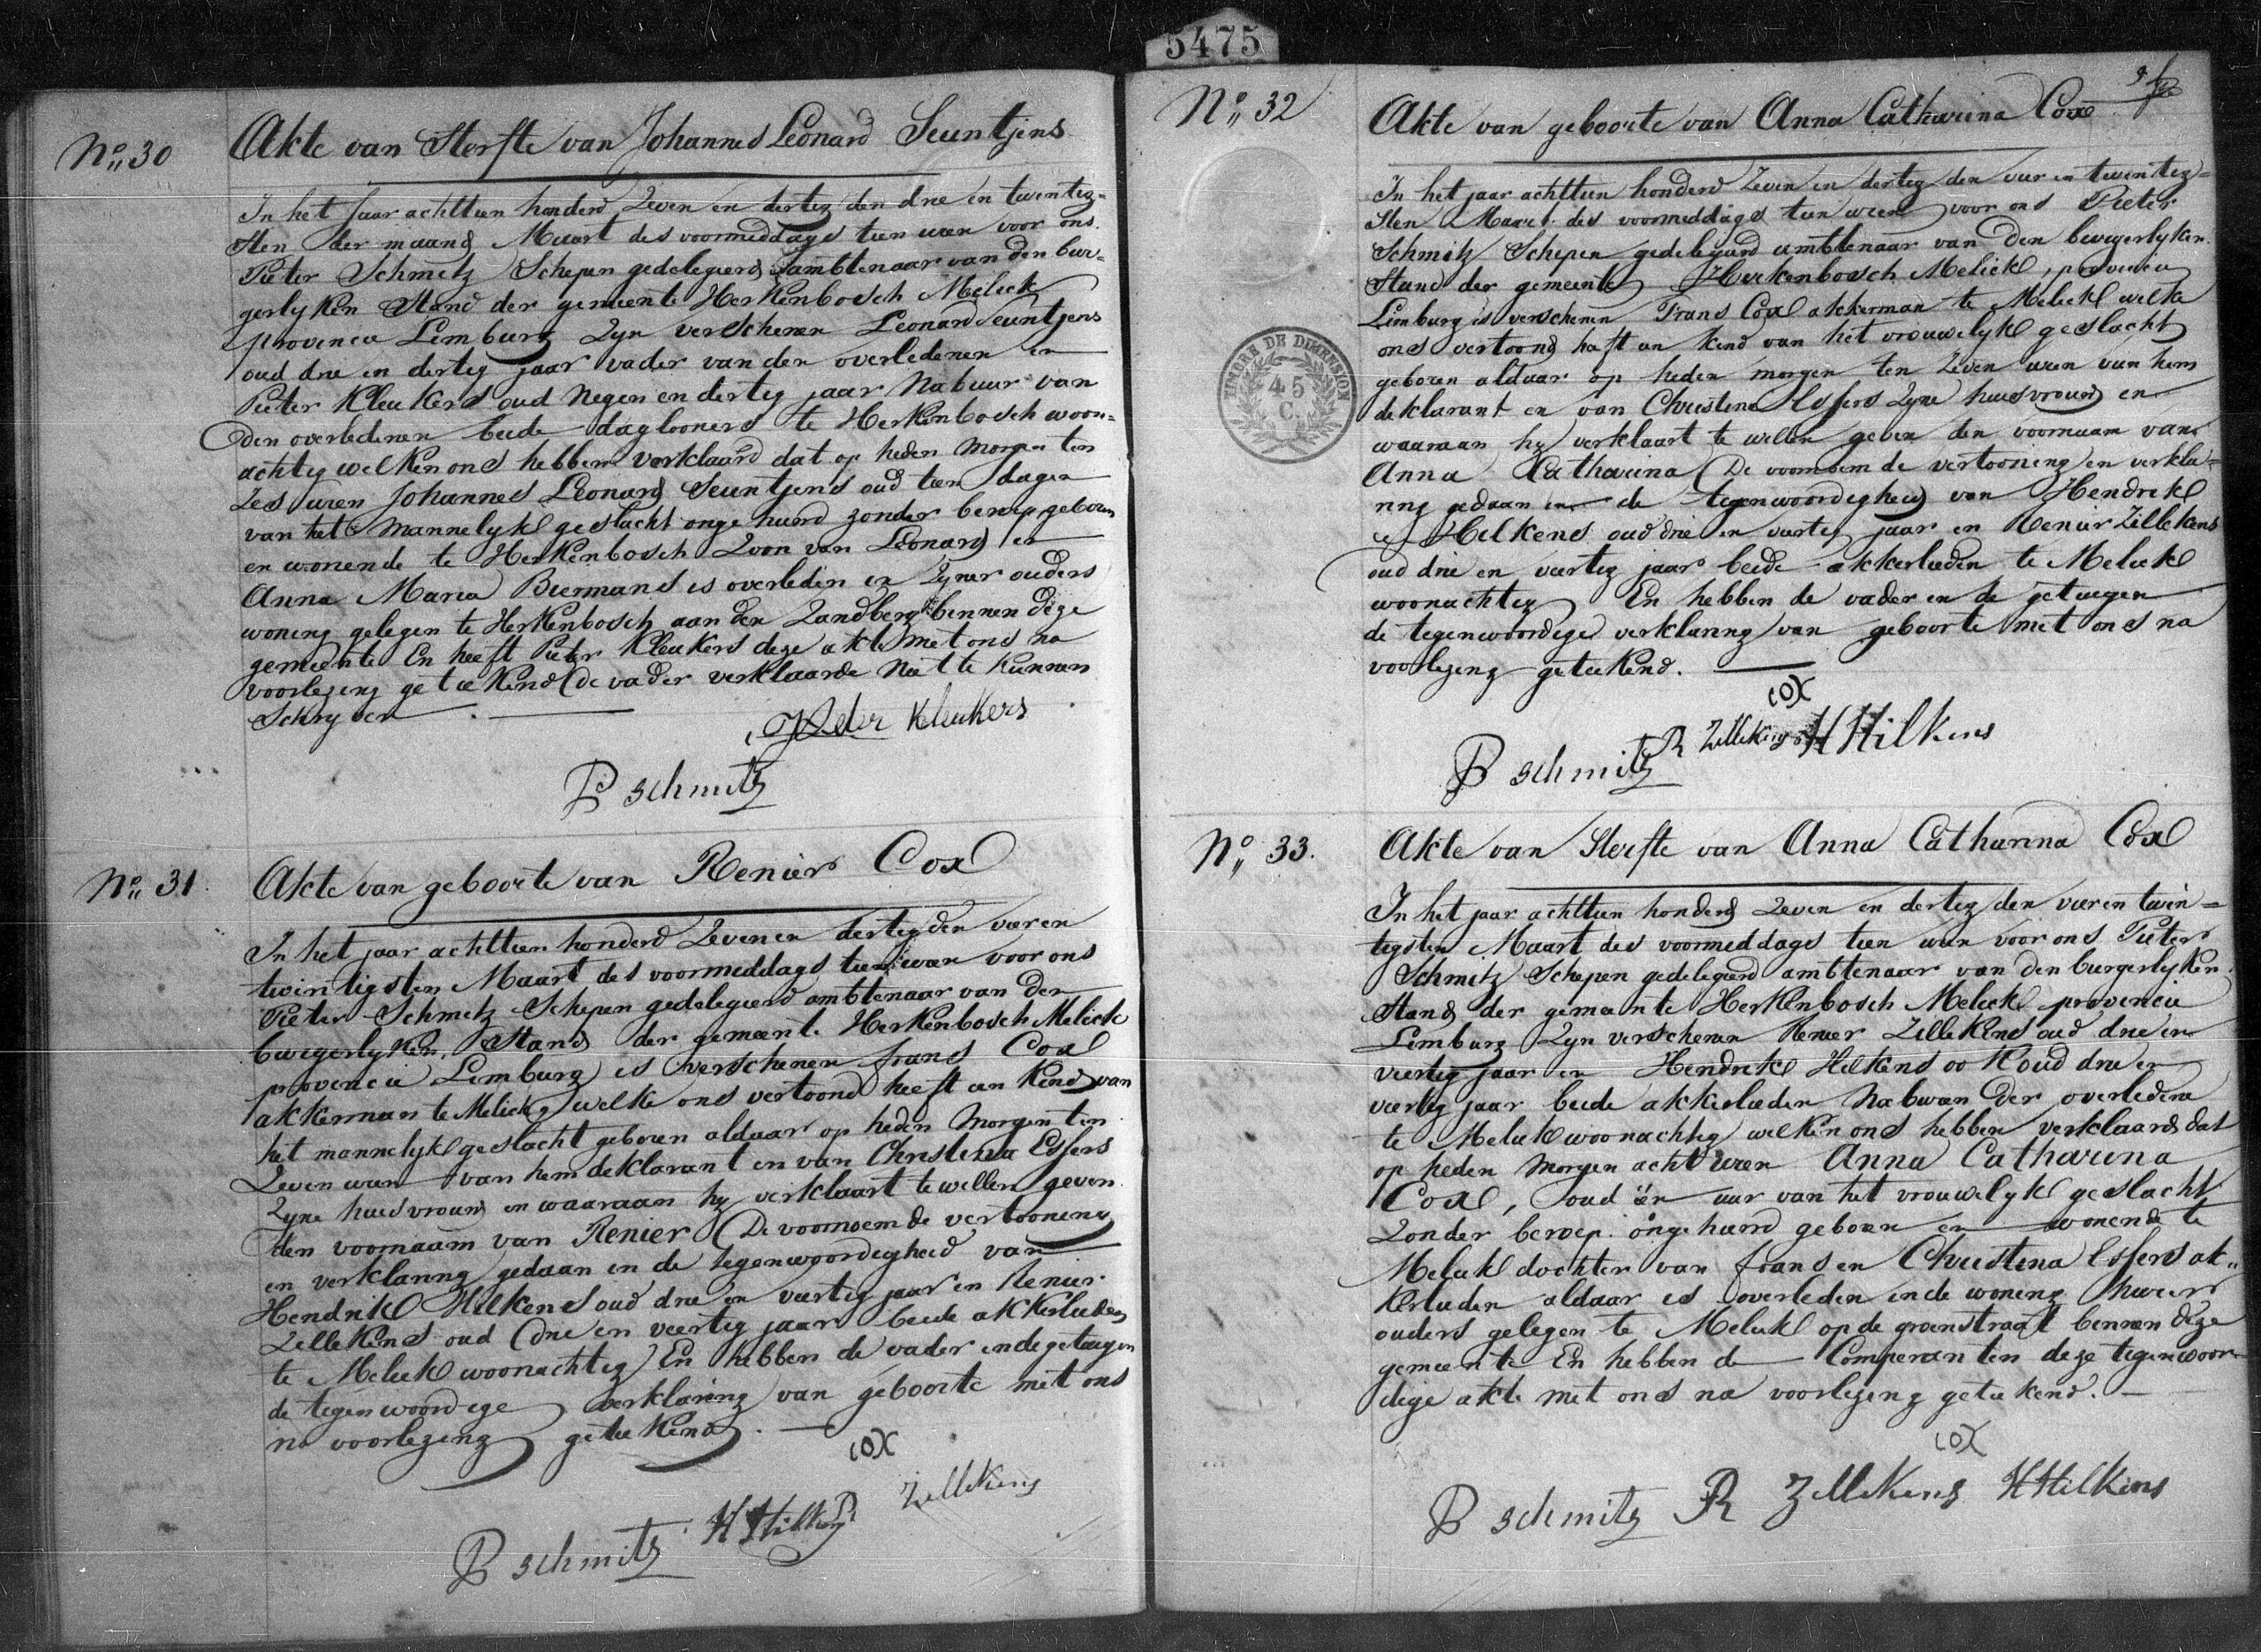 5475
N° 30
Akte van Sterfte van Johannes Leonard Seuntjens
In het Jaar achttien honderd Zeven en dertig den drie en twintig=
sten der maand Maart des voormiddags tien uren voor ons
Pieter Schmitz Schepen gedelegierd ambtenaar van den bur=
gerlyken Stand der gemeente Herkenbosch Melick
provincie Limburg Zyn verschenen Leonard Seuntjens
oud drie en dertig jaar vader van den overledenen en
Pieter Kleukers oud Negen en dertig jaar Nabuur van
den overledenen beide daglooners te Herkenbosch woon=
achtig welken ons hebben verklaard dat op heden morgen ten
Zes uren Johannes Leonard Seuntjens oud tien dagen
van het mannelyk geslacht ongehuwd zonder beroep geboren
en wonende te Herkenbosch Zoon van Leonard en
Anna Maria Biermans is overleden in Zyner ouders
woning gelegen te Herkenbosch aan den Zandberg binnen deze
gemeente En heeft Pieter Kleukers deze akte met ons na
voorlezing geteekend de vader verklaarde Niet te kunnen
Schryven.
Peter Kleukers
P schmitz
N° 31.
Akte van geboorte van Renier Cox
In het jaar achttien honderd Zeven en dertig den vier en
twintigsten Maart des voormiddags tien uren voor ons
Pieter Schmitz Schepen gedelegierd ambtenaar van den
burgerlyken Stand der gemeente Herkenbosch Melick
provincie Limburg is verschenen frans Cox
akkerman te Melick welke ons vertoond heeft een Kind van
het mannelyk geslacht geboren aldaar op heden morgen ten
Zeven uren van hem deklarant en van Christina Essers
Zyne huisvrouw en waaraan hy verklaart te willen geven
den voornaam van Renier De voornoemde vertooning
en verklaring gedaan in de tegenwoordigheid van
Hendrik Hilkens oud drie en veertig jaar en Renier
Zillekens oud drie en veertig jaar beide akkerlieden
te Melick woonachtig En hebben de vader en de getuigen
de tegenwoordige verklaring van geboorte met ons
na voorlezing geteekend.
COX
P schmitz H Hilkens R Zillekens
N° 32
Akte van geboorte van Anna Catharina Cox
In het jaar achttien honderd Zeven en dertig den vier en twintig=
sten Maart des voormiddags tien uren voor ons Pieter
Schmitz Schepen gedelegierd ambtenaar van den burgerlyken
Stand der gemeente Herkenbosch Melick, provincie
Limburg is verschenen Frans Cox akkerman te Melick welke
ons vertoond heeft een Kind van het vrouwelyk geslacht
geboren aldaar op heden morgen ten Zeven uren van hem
deklarant en van Christina Essers Zyne huisvrouw en
waaraan hy verklaart te willen geven den voornaam van
Anna Catharina De voornoemde vertooning en verkla=
ring gedaan in de tegenwoordigheid van Hendrik
Hilkens oud drie en veertig jaar en Renier Zillekens
oud drie en veertig jaar beide akkerlieden te Melick
woonachtig En hebben de vader en de getuigen
de tegenwoordige verklaring van geboorte met ons na
voorlezing geteekend.
TIMBRE DE DIMENSION
45
C.
COX
P schmitz R Zillekens H Hilkens
N° 33.
Akte van Sterfte van Anna Catharina Cox
In het jaar achttien honderd Zeven en dertig den vier en twin=
tigsten Maart des voormiddags tien uren voor ons Pieter
Schmitz Schepen gedelegierd ambtenaar van den burgerlyken
Stand der gemeente Herkenbosch Melick provincie
Limburg Zyn verschenen Renier Zillekens oud drie en
veertig jaar en Hendrik Hilkens ook oud drie en
veertig jaar beide akkerlieden Naburen der overledene
te Melick woonachtig welken ons hebben verklaard dat
op heden morgen acht uren Anna Catharina
Cox, oud één uur van het vrouwelyk geslacht
Zonder beroep ongehuwd geboren en wonende te
Melick dochter van frans en Christina Essers ak=
kerlieden aldaar is overleden in de woning harer
ouders gelegen te Melick op de groenstraat binnen deze
gemeente En hebben de Comparanten deze tegenwoor
dige akte met ons na voorlezing geteekend.
COX
P schmitz R Zillekens H Hilkens